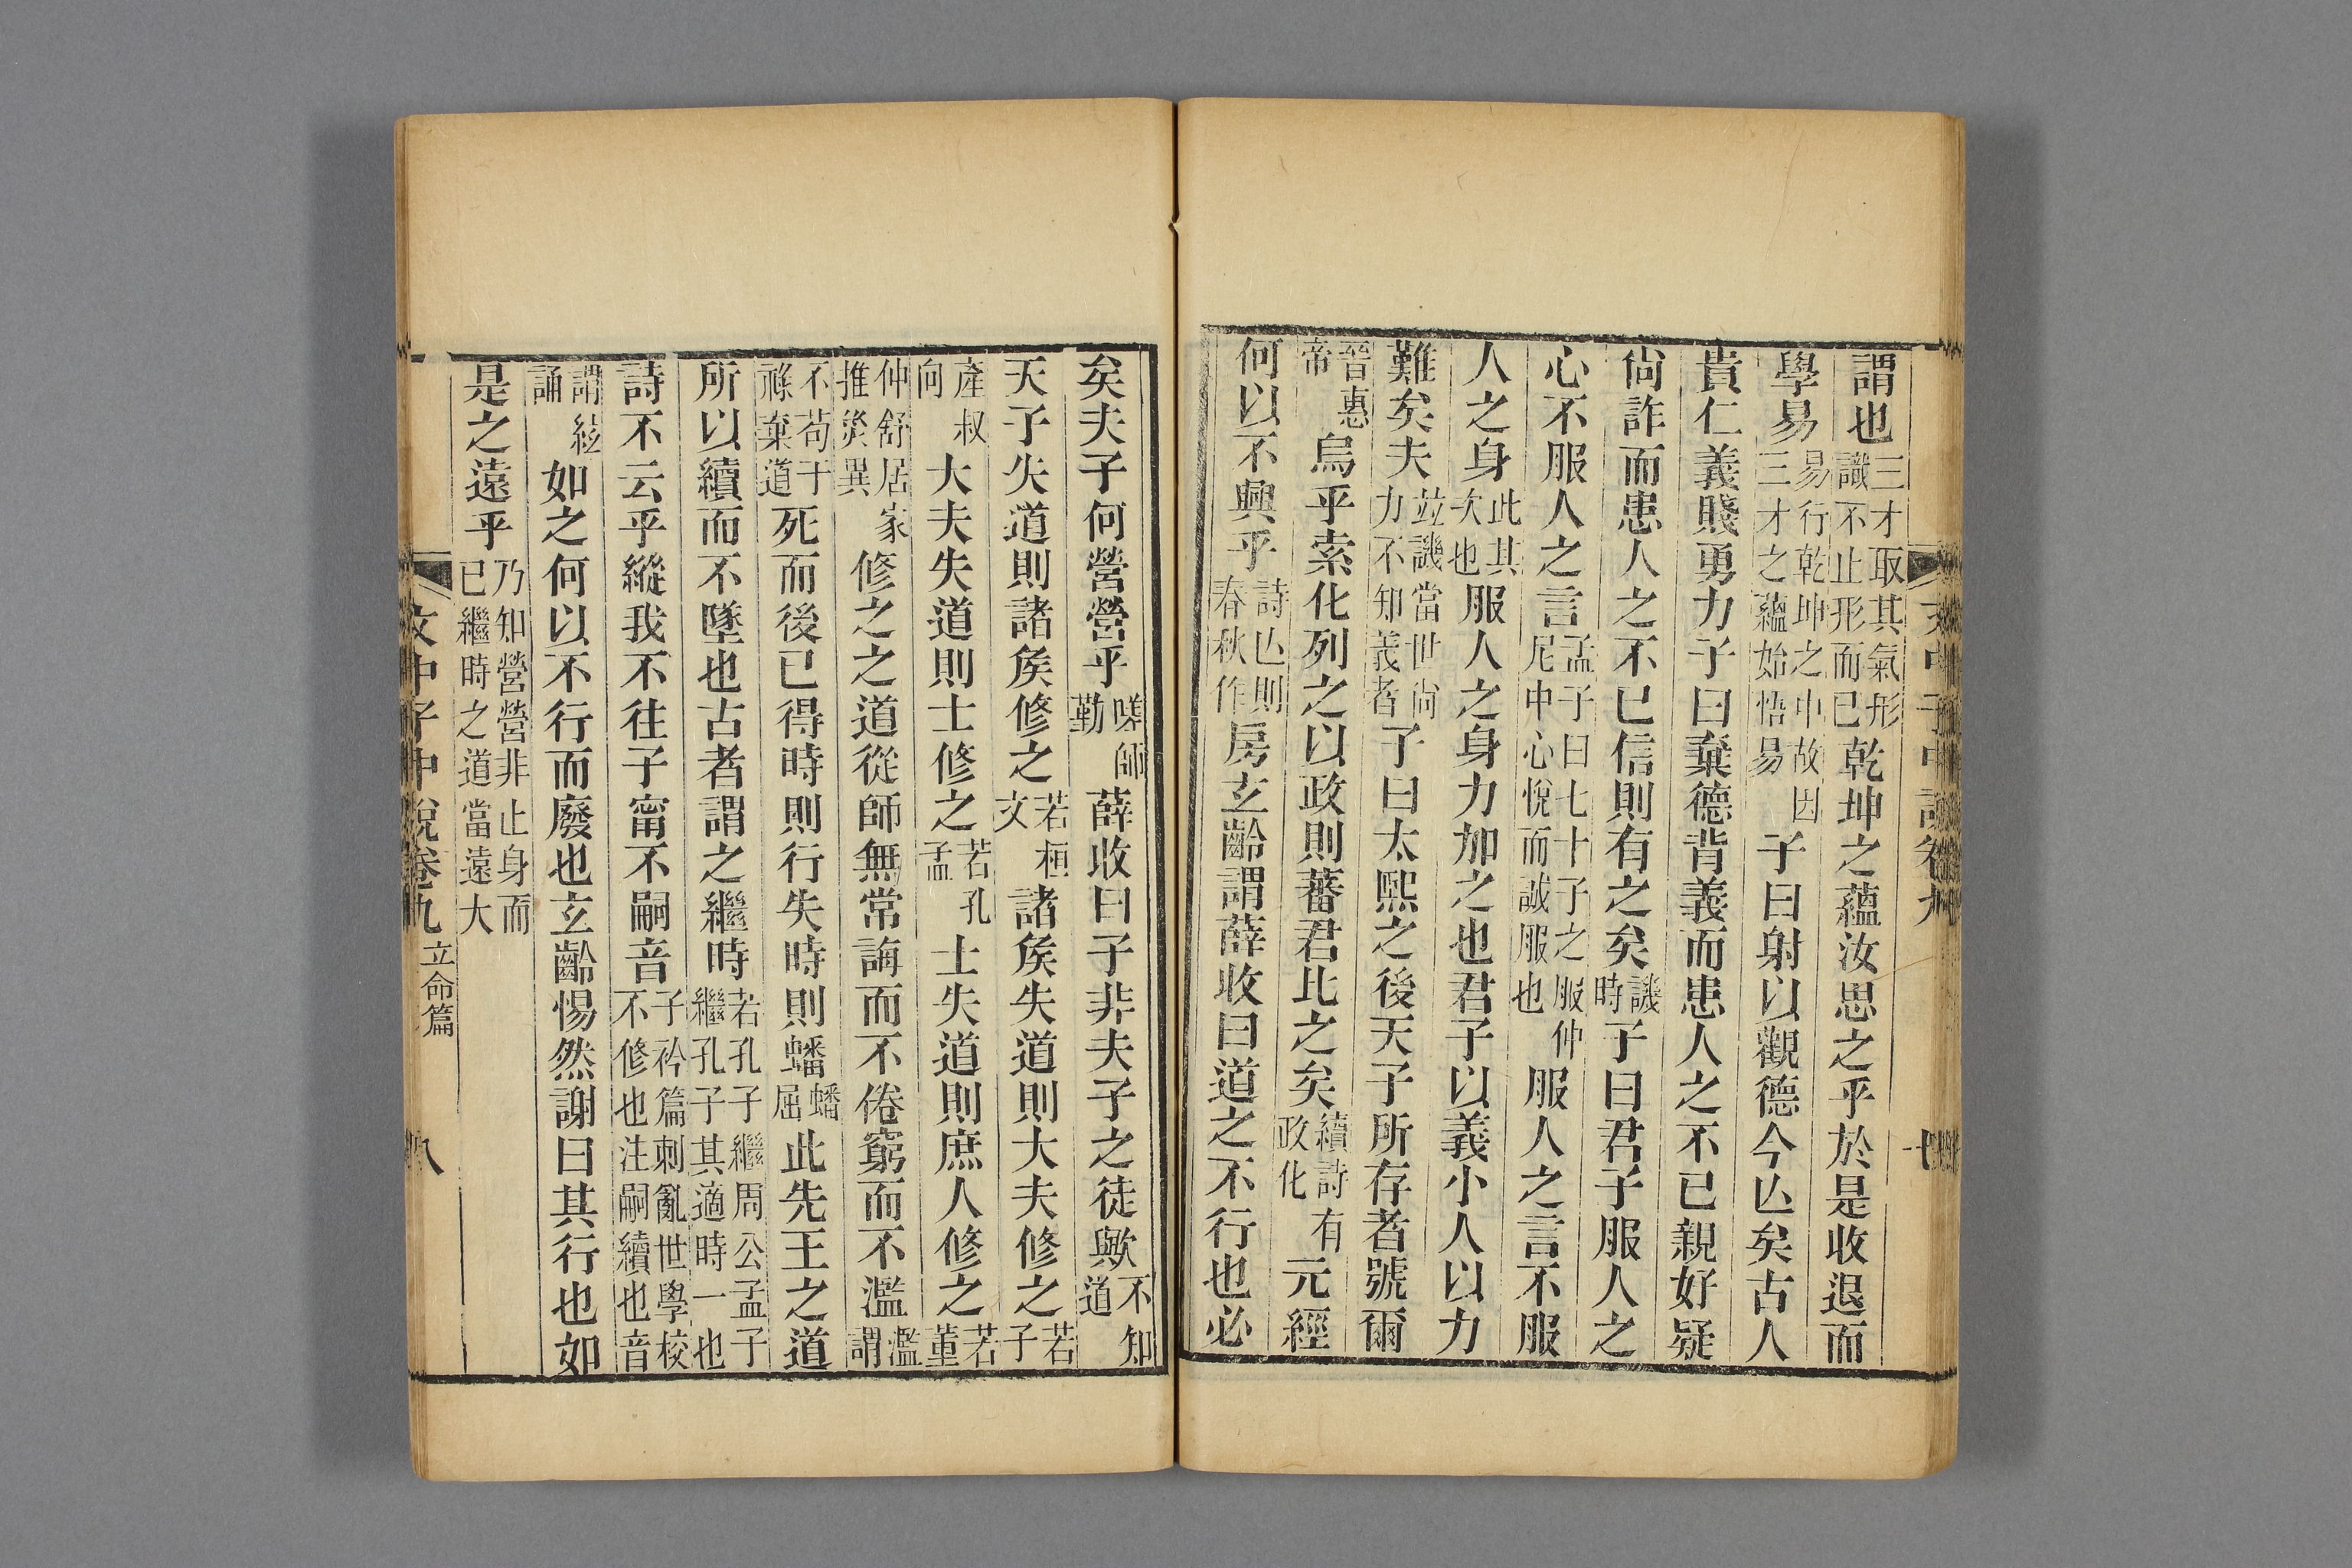 謂也三才取其氣形識不止形而已乾坤之蘊汝思之乎於是收退而
學易易行乾坤之中故因三才之蘊始悟易子曰射以觀德今亾矣古人
貴仁義賤勇力子曰棄德背義而患人之不已親好疑
尙詐而患人之不已信則有之矣譏時子曰君子服人之
心不服人之言孟子曰七十子之服仲尼中心悅而誠服也服人之言不服
人之身此其次也服人之身力加之也君子以義小人以力
難矣夫竝譏當世尙力不知義者子曰太熙之後天子所存者號爾
晉惠帝烏乎索化列之以政則蕃君比之矣續詩有政化元經
何以不興乎詩亾則春秋作房玄齡謂薛收曰道之不行也必
矣夫子何營營乎嗟師勤薛收曰子非夫子之徒歟不知道
天子失道則諸矦修之若桓文諸矦失道則大夫修之若子
產叔向大夫失道則士修之若孔孟士失道則庶人修之若董
仲舒居家推災異修之之道從師無常誨而不倦窮而不濫濫謂
不苟于祿棄道死而後已得時則行失時則蟠蟠屈此先王之道
所以續而不墜也古者謂之繼時若孔子繼周公孟子繼孔子其適時一也
詩不云乎縱我不往子甯不嗣音子衿篇刺亂世學校不修也注嗣續也音
謂絃誦如之何以不行而廢也玄齡惕然謝曰其行也如
是之遠乎乃知營營非止身而已繼時之道當遠大
文中子中說卷九 立命篇 八